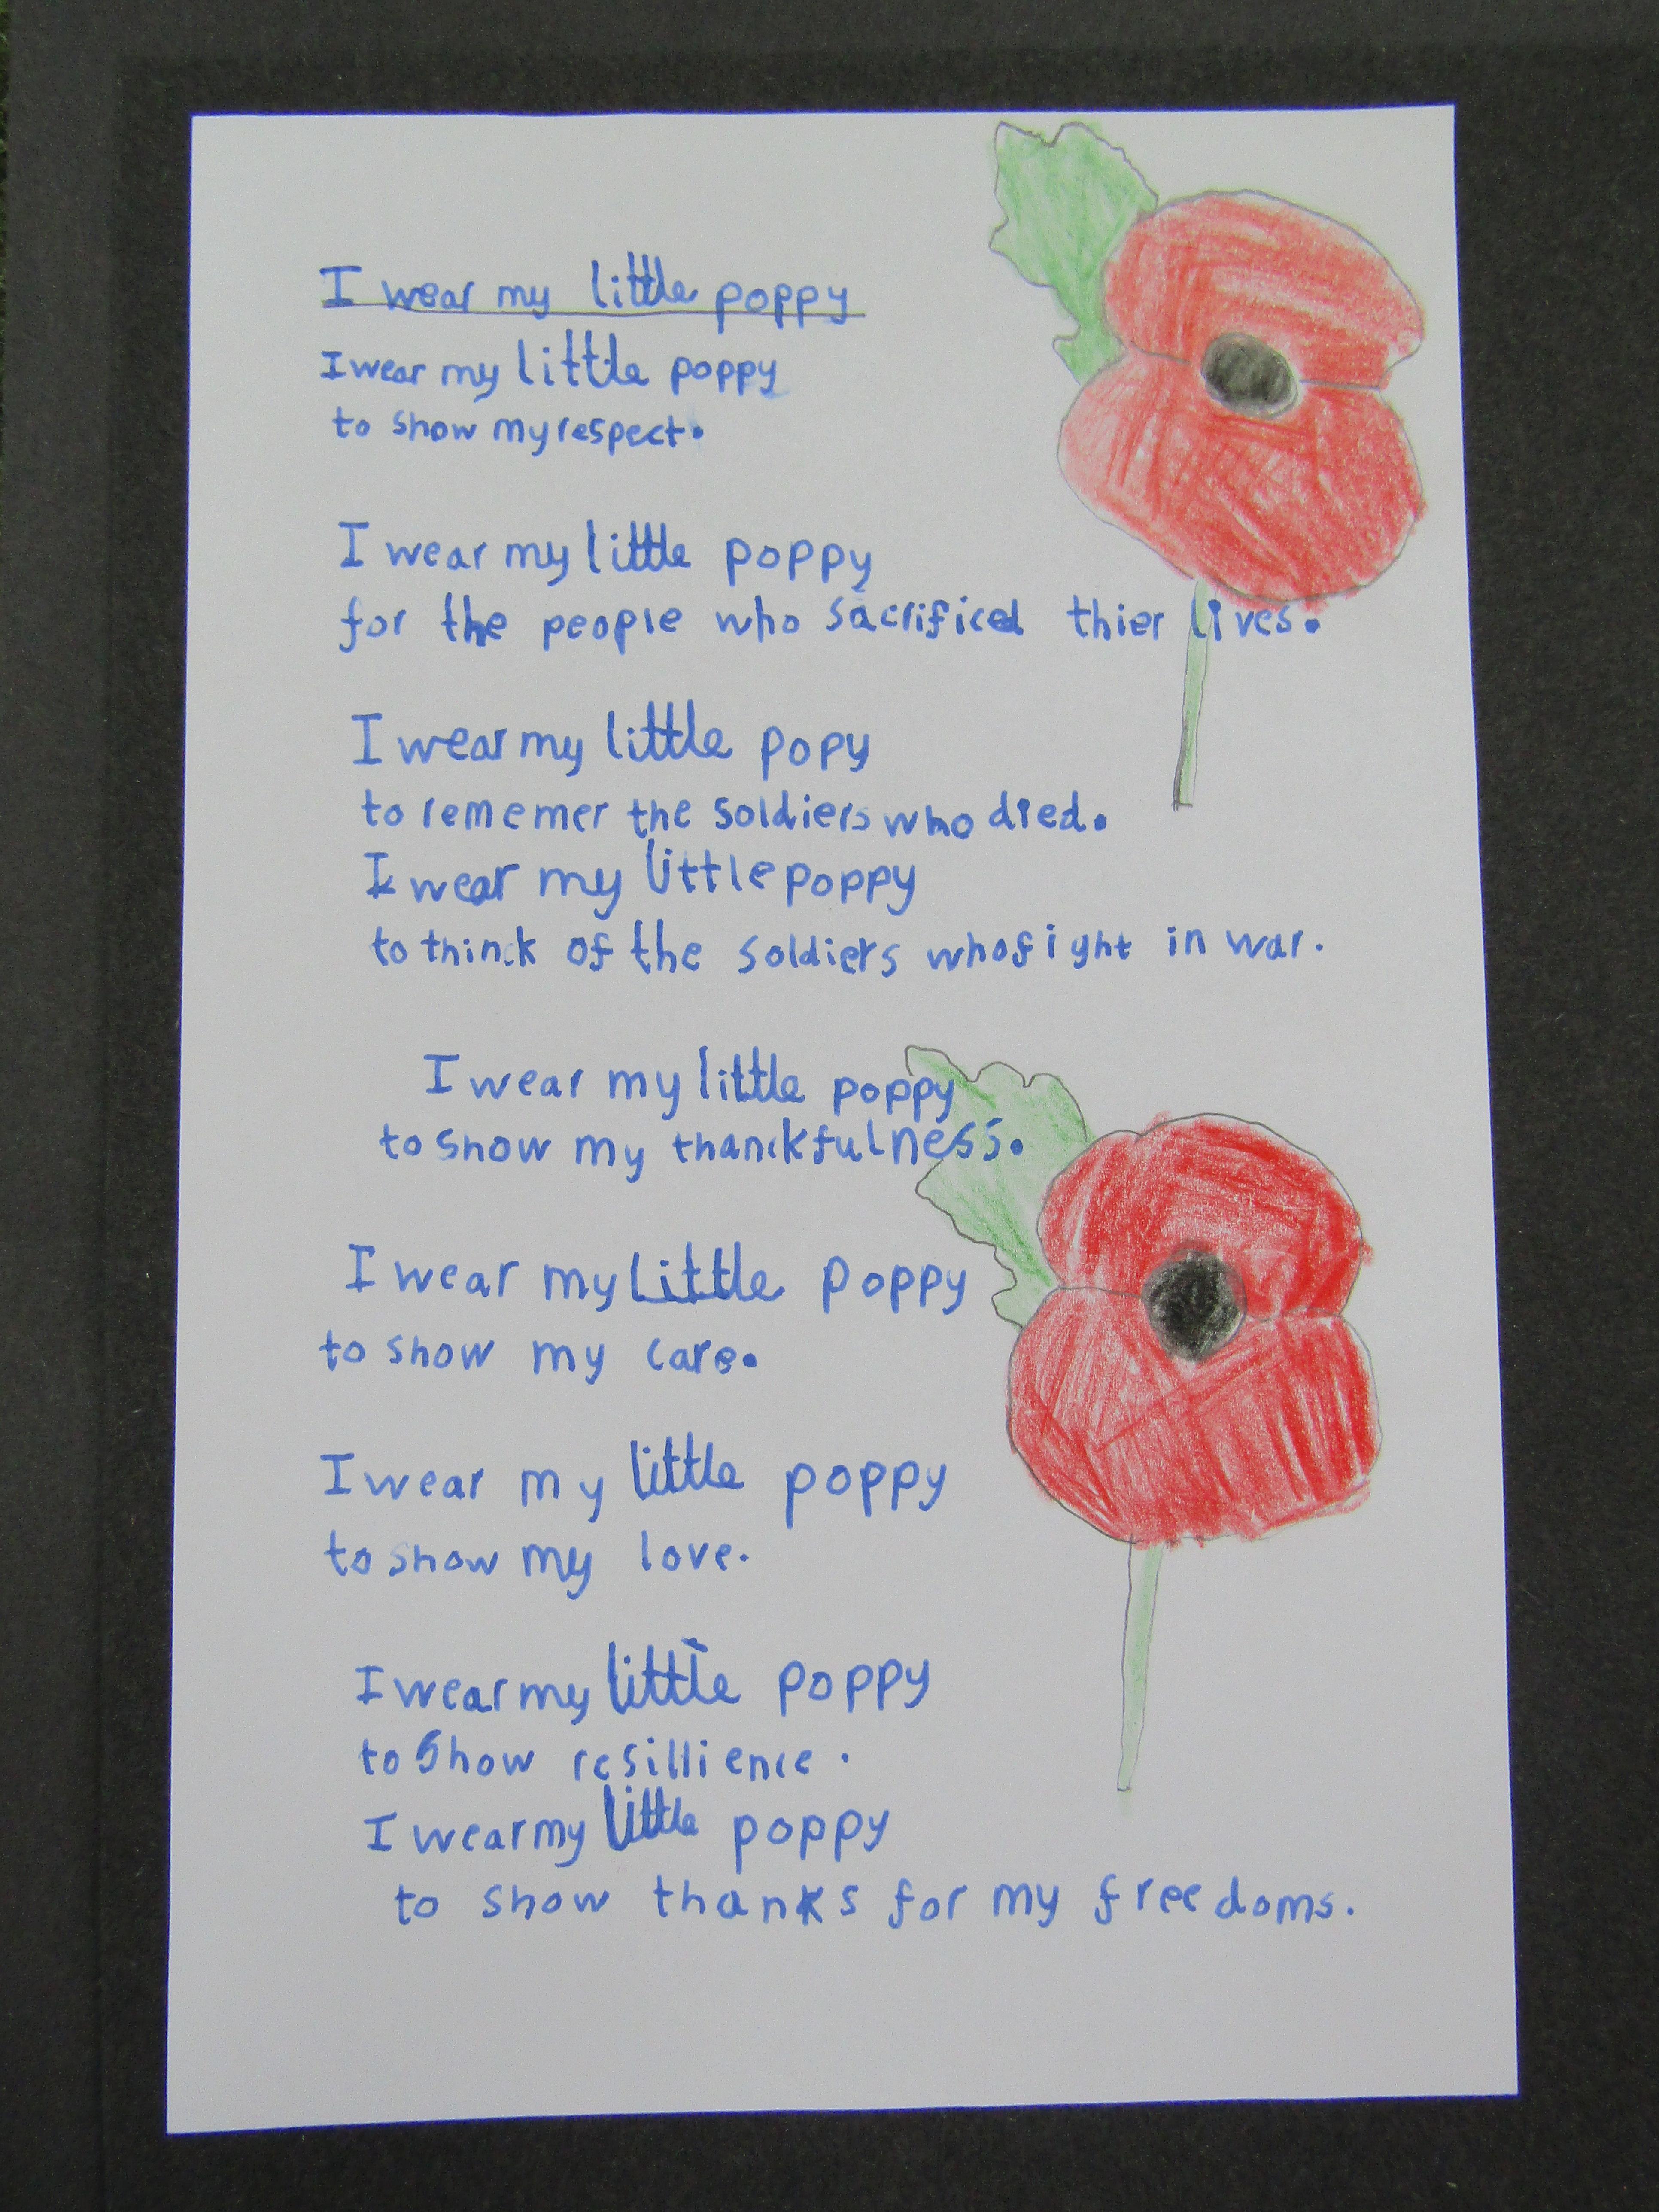 I wear my little poppy
I wear my little poppy
to show my respect.
I wear my little poppy
for the people who sacrificed thier lives.
I wear my little popy
to rememer the soldiers who died.
I wear my little poppy
to thinck of the soldiers who fight in war.
I wear my little poppy
to show my thanckfulness.
I wear my little poppy
to show my care.
I wear my little poppy
to show my love.
I wear my little poppy
to show resillience.
I wear my little poppy
to show thanks for my freedoms.